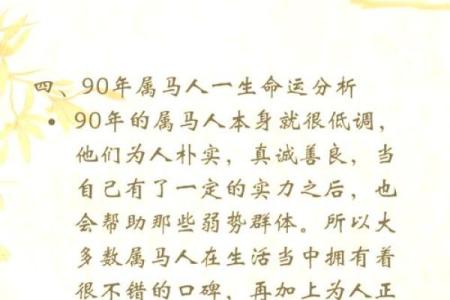 四、90年属马人一生命运分析
• 90年的属马人本身就很低调，
他们为人朴实，真诚善良，当
自己有了一定的实力之后，也
会帮助那些弱势群体。所以大
多数属马人在生活当中拥有着
很不错的口碑，再加上为人正